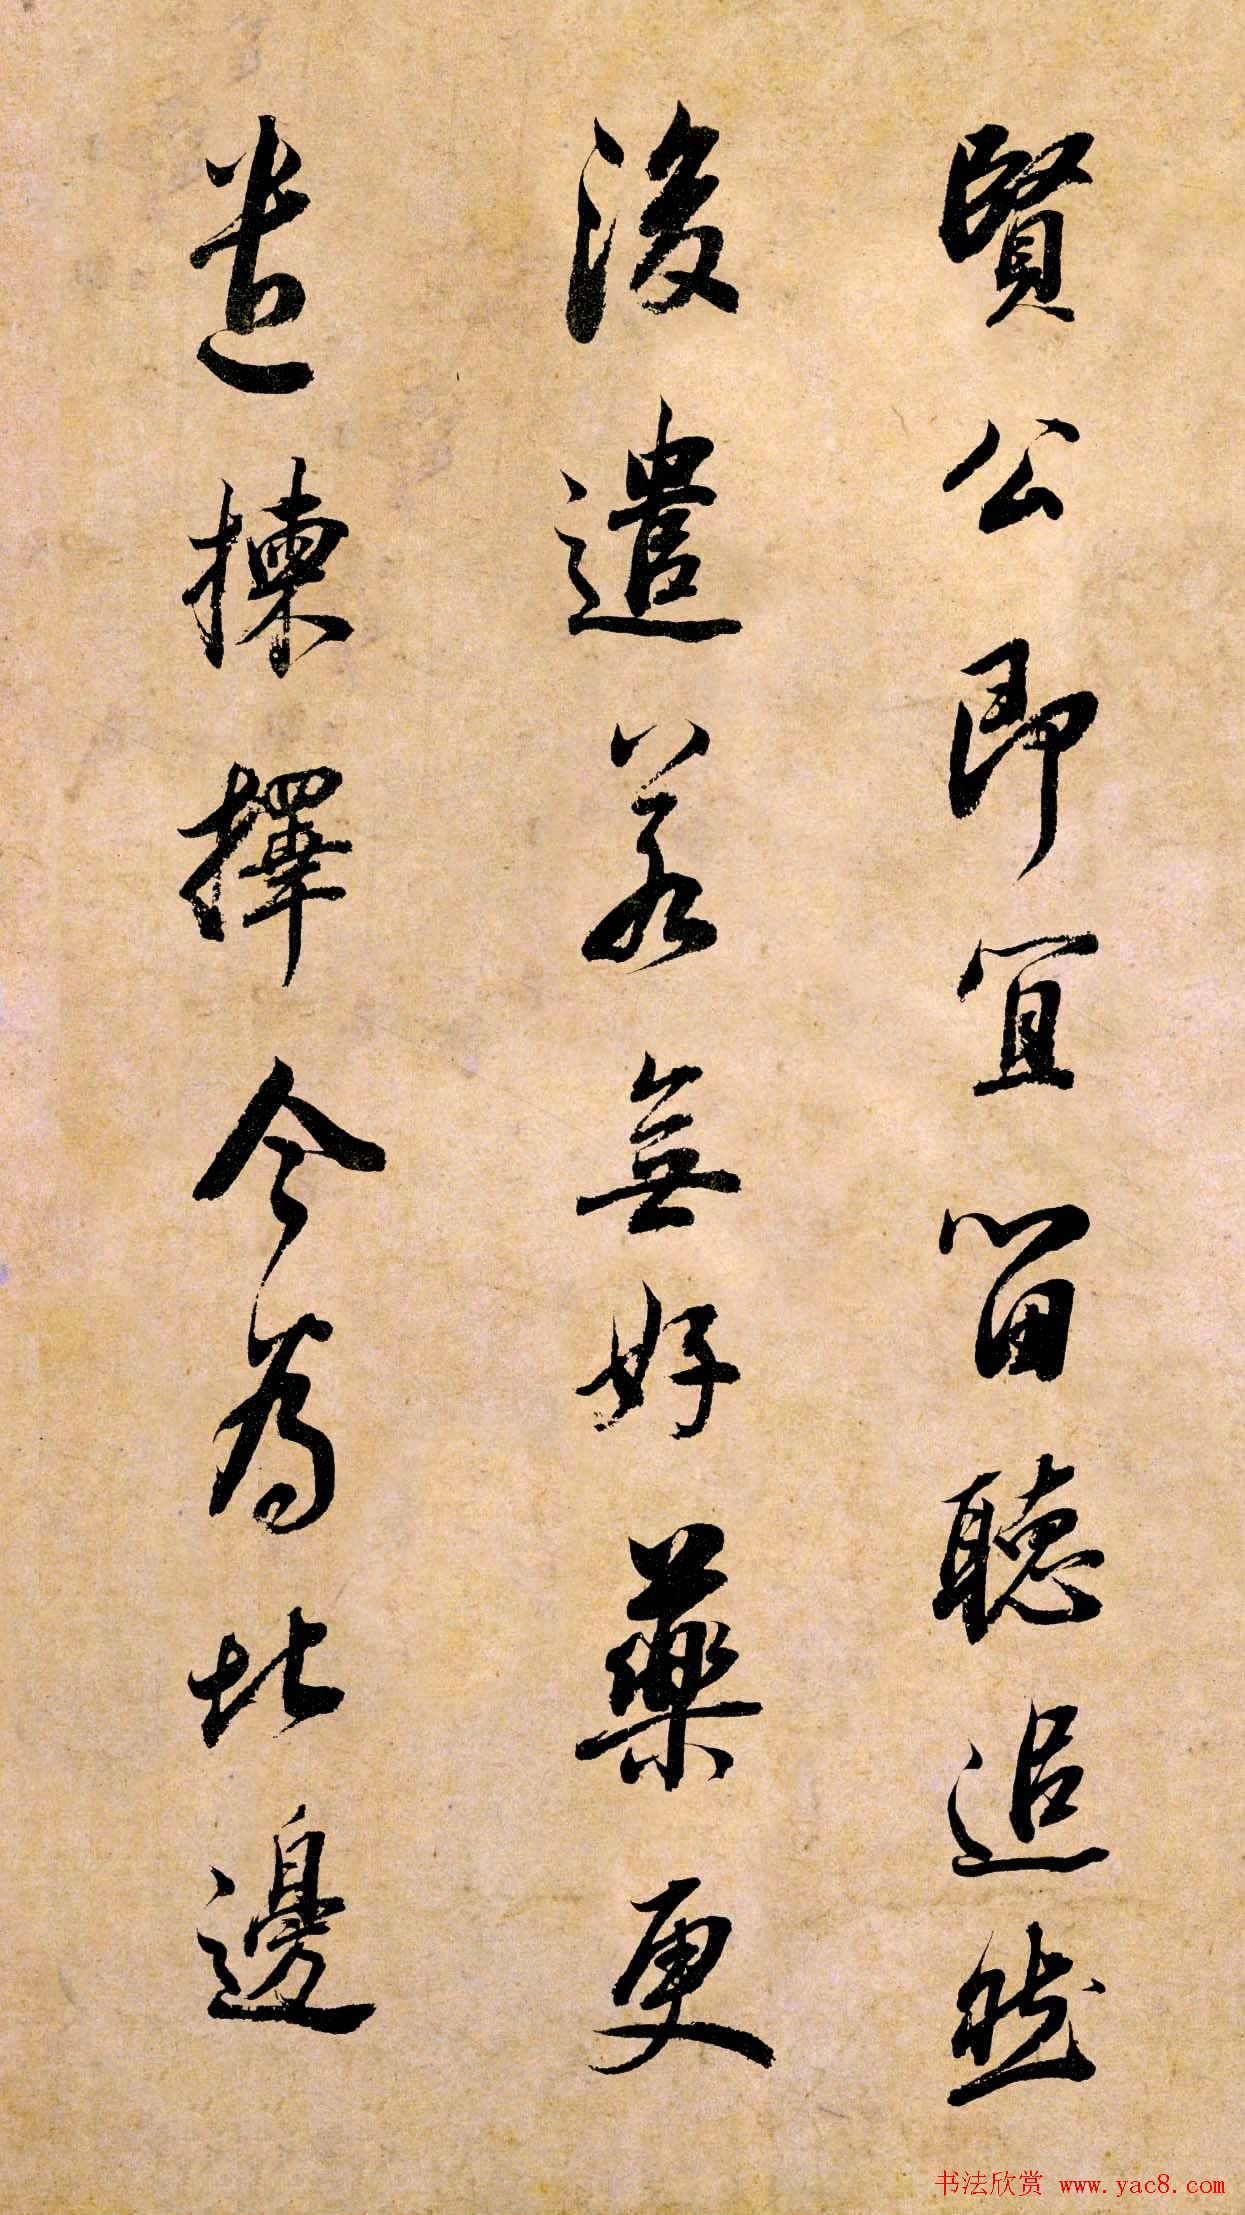 賢公即冝留聽追然
後遣若無好藥更
遣揀擇今為此邊
书法欣赏 www.yac8.com